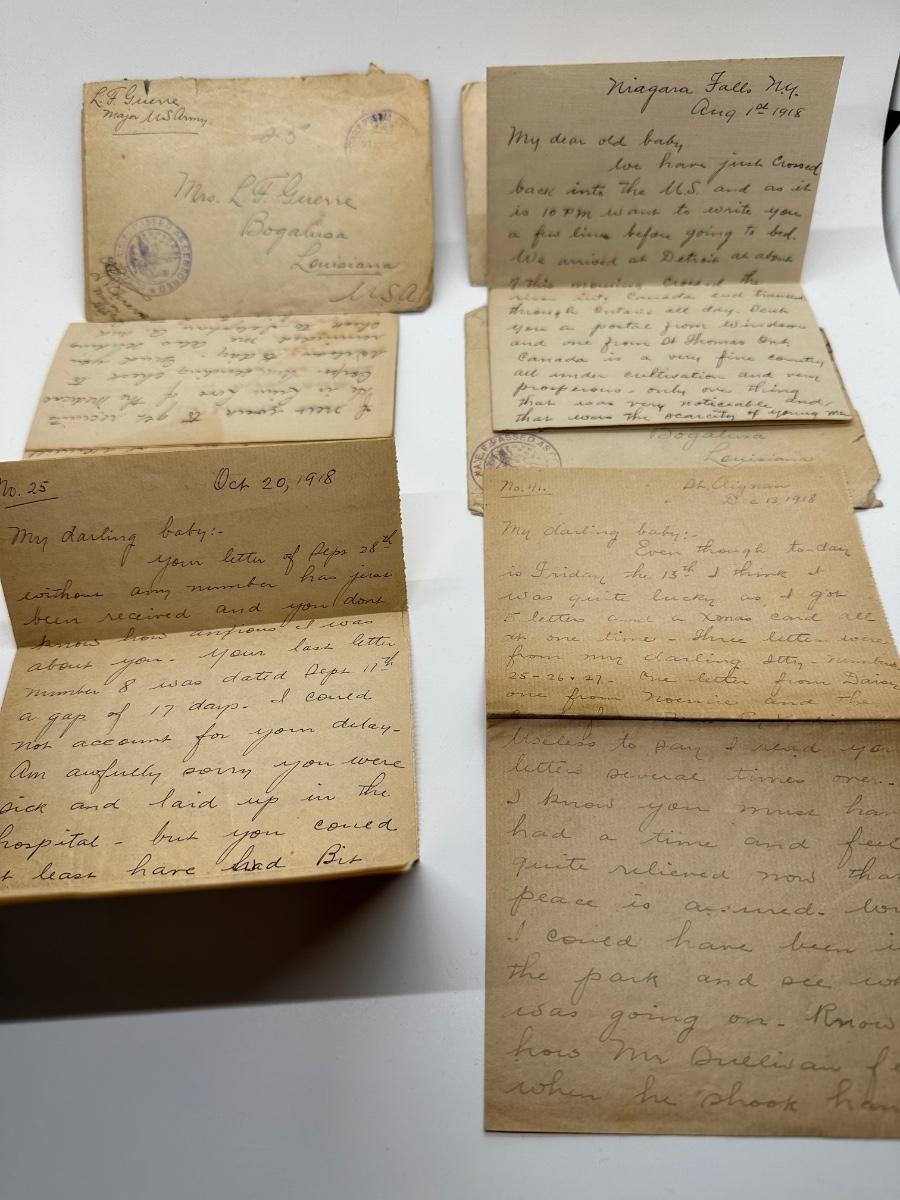 L. F. Guerre
Major U.S. Army.
Mrs. L. F. Guerre
Bogalusa
Louisiana
U.S.A
Niagara Falls N.Y.
Aug 1st 1918
My dear old baby
We have just crossed
back into the U.S. and as it
is 10 PM want to write you
a few lines before going to bed.
We arrived at Detroit at about
7 this morning crossed the
river into Canada and
through Ontario all day. Sent
you a postal from Windsor
and one from St Thomas Ont
Canada is a very fine country
all under cultivation and very
prosperous - only one thing
that was very noticeable and
that was the scarcity of young men
I never gave to
get receipt
He is
of the Medical
Corps
check to
day. Send you
reminded me also
check to
and
A.E.F. PASSED AS CENSORED
A.E.F. PASSED AS
Bogalusa
Louisiana
No. 25
Oct 20, 1918
My darling baby:-
Your letter of Sept 28th
without any number has just
been received and you dont
know how anxious I was
about you. Your last letter
number 8 was dated Sept 11th
a gap of 17 days. I could
not account for your delay-
Am awfully sorry you were
sick and laid up in the
hospital - but you could
t least have had Bit
No. 41.
St. Aignan
Dec 13, 1918
My darling baby:-
Even though to-day
is Friday the 13th I think I
was quite lucky as I got
5 letters and a Xmas card all
at one time - Three letters were
from my darling Itty - numbered
25-26 & 27. One letter from Daisy
one from Noemie and the
Useless to say I read your
letters several times over.
I know you must have
had a time and feel
quite relieved now that
peace is assured.
I could have been in
the park and see wh
was going on. Know
how Mr Sullivan fe
when he shook han